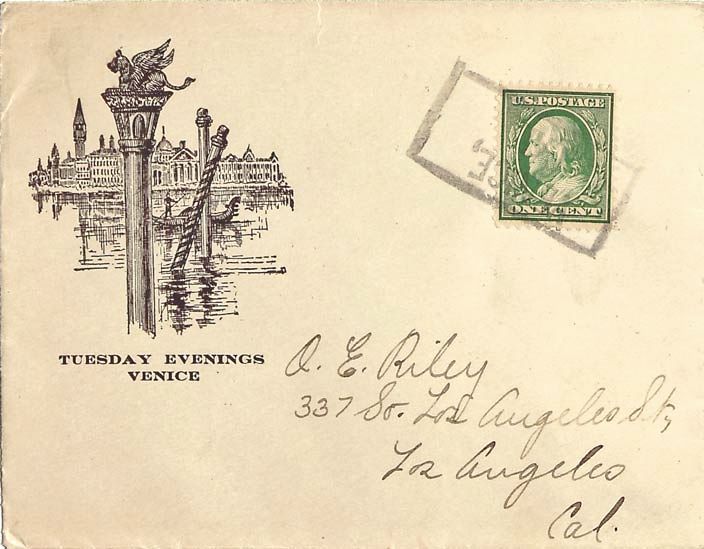 U.S.POSTAGE
ONE CENT
TUESDAY EVENINGS
VENICE
O. E. Riley
337 So. Los Angeles St,
Los Angeles
Cal.